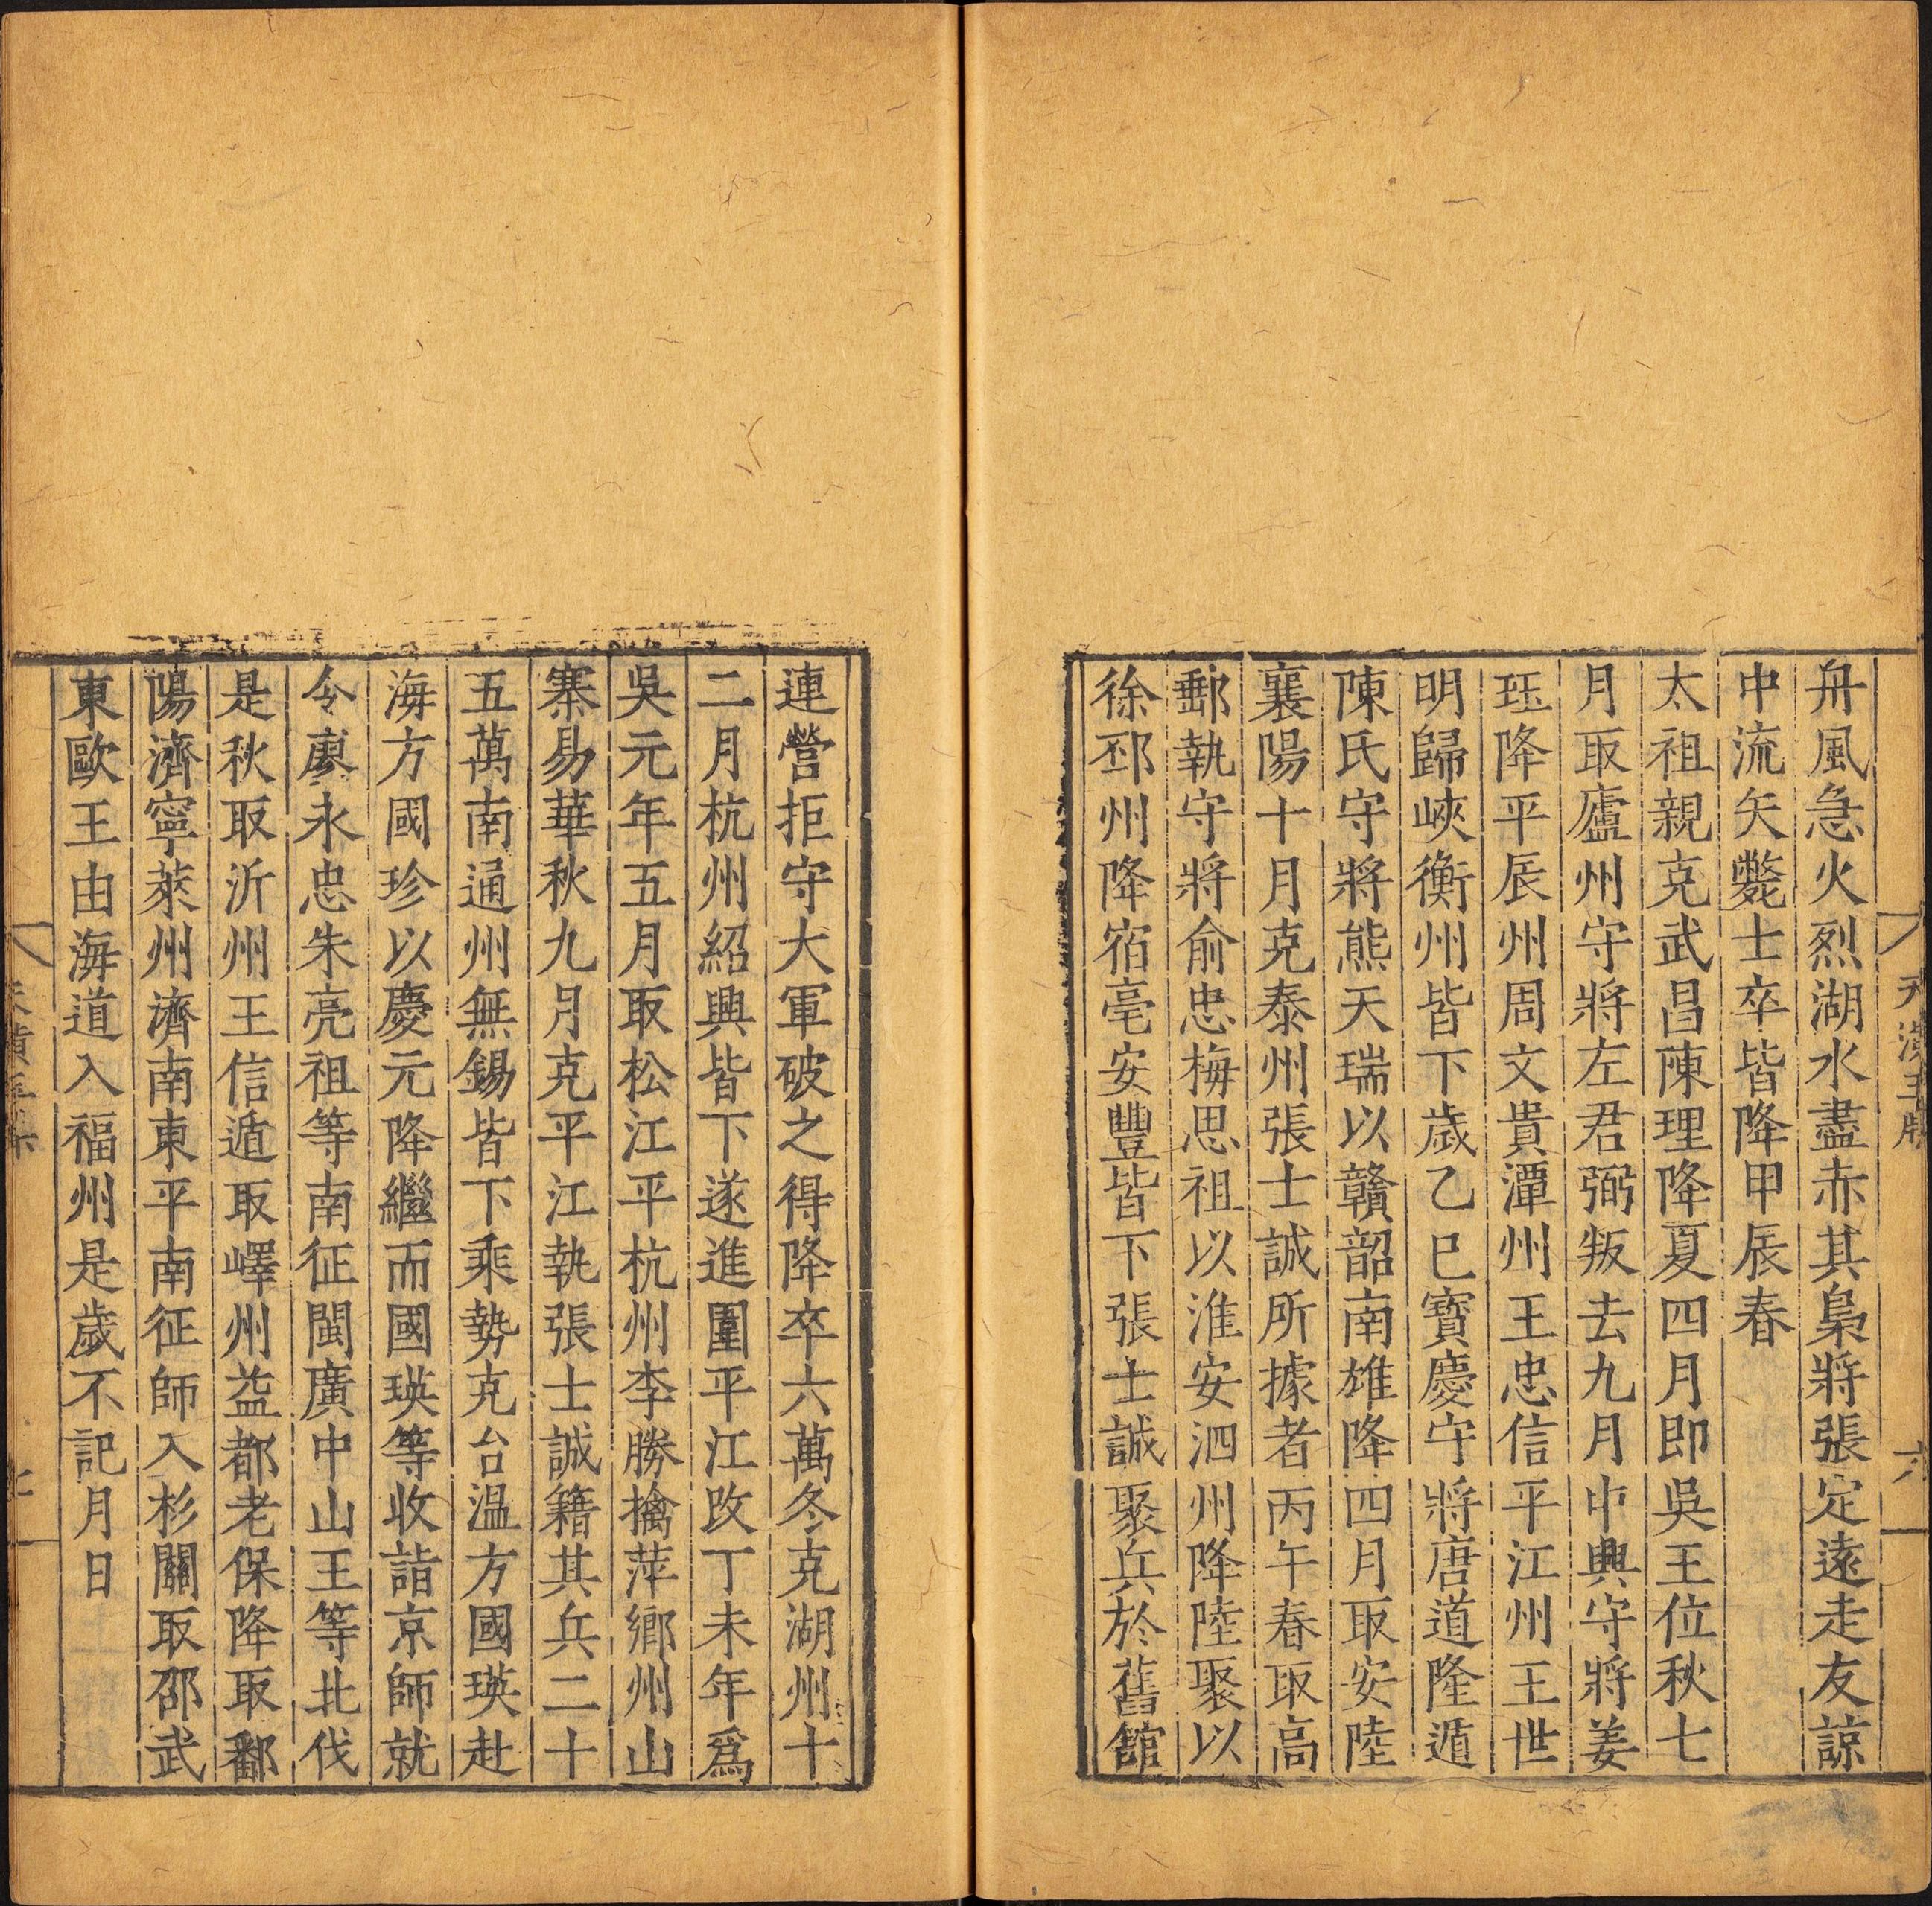 舟風急火烈湖水盡赤其梟將張定遠走友諒
中流矢斃士卒皆降甲辰春
太祖親克武昌陳理降夏四月即吳王位秋七
月取廬州守將左君弼叛去九月中興守將姜
珏降平辰州周文貴潭州王忠信平江州王世
明歸峽衡州皆下歲乙巳寶慶守將唐道隆遁
陳氏守將熊天瑞以贛韶南雄降四月取安陸
襄陽十月克泰州張士誠所據者丙午春取高
郵執守將俞忠梅思祖以淮安泗州降陸聚以
徐邳州降宿亳安豐皆下張士誠聚兵於舊館
連營拒守大軍破之得降卒六萬冬克湖州十
二月杭州紹興皆下遂進圍平江改丁未年爲
吳元年五月取松江平杭州李勝擒萍鄉州山
寨易華秋九月克平江執張士誠籍其兵二十
五萬南通州無錫皆下乘勢克台温方國瑛赴
海方國珍以慶元降繼而國瑛等收詣京師就
令廖永忠朱亮祖等南征閩廣中山王等北伐
是秋取沂州王信遁取嶧州益都老保降取鄱
陽濟寧萊州濟南東平南征師入杉關取邵武
東歐王由海道入福州是歲不記月日